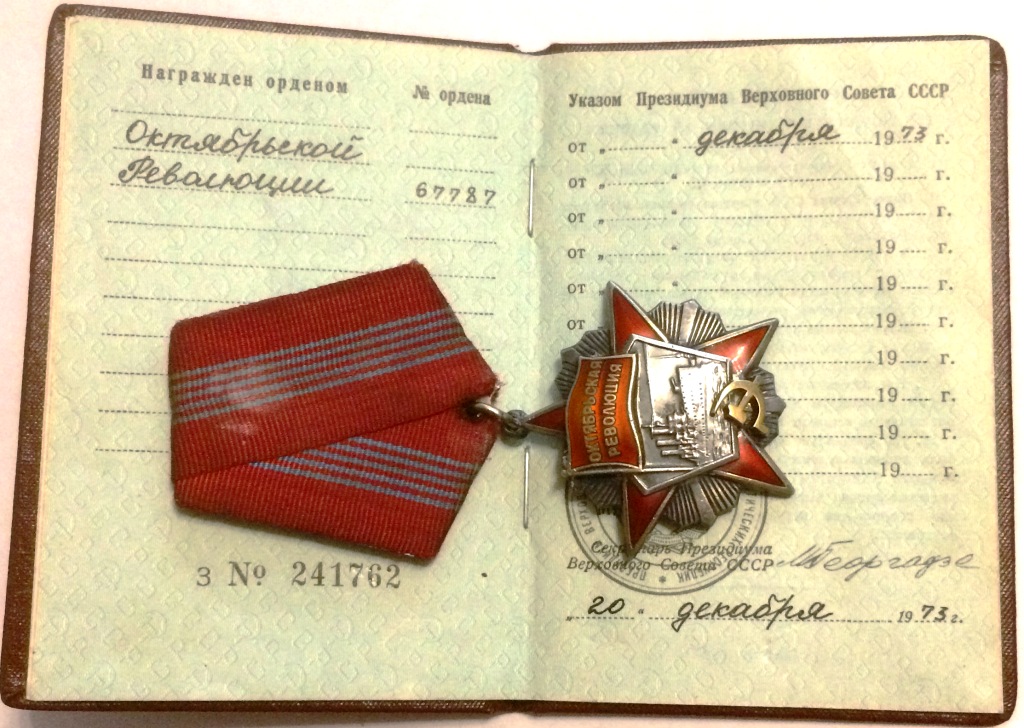 Награжден орденом
№ ордена
Октябрьской
Революции
67787
з № 241762
Указом Президиума Верховного Совета СССР
от „ “ декабря 1973 г.
от „ “ 19 г.
от „ “ 19 г.
от „ “ 19 г.
от „ “ 19 г.
от „ 19 г.
19 г.
19 г.
19 г.
19 г.
ОКТЯБРЬСКАЯ
РЕВОЛЮЦИЯ
Секретарь Президиума
Верховного Совета СССР
МГеоргадзе
„20 “ декабря 1973 г.